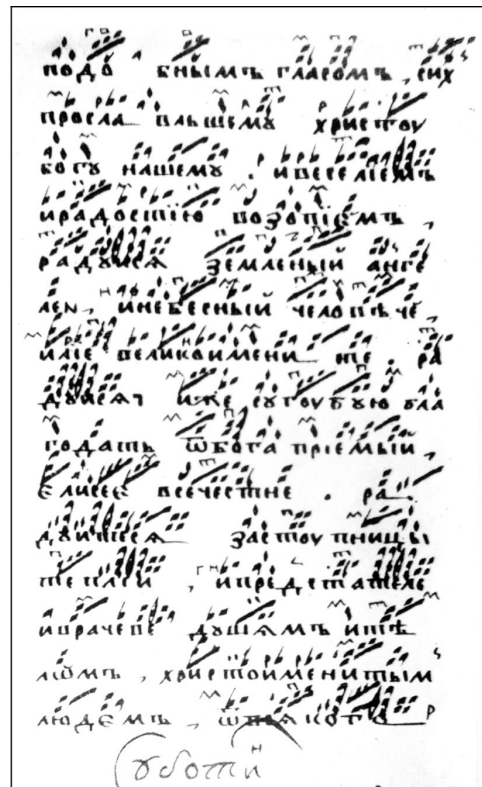 подо бнымъ гласомъ, сих
просла вльшемꙋ христоу
богꙋ нашемꙋ . ивеселїемъ
ирадостїю возопїемъ ,
радꙋисѧ земленый анге
лен , инебесный человѣче ,
илїе великоимени те ра
дꙋисѧ иже соугоубꙋю бла
годать ѿбога прїемый ,
елисее всечестне . ра
дꙋитесѧ застоу пницы
теплїи , ипредстателе
иврачеве дꙋшамъ итѣ
лѡмъ , христоименитым
людемъ ,